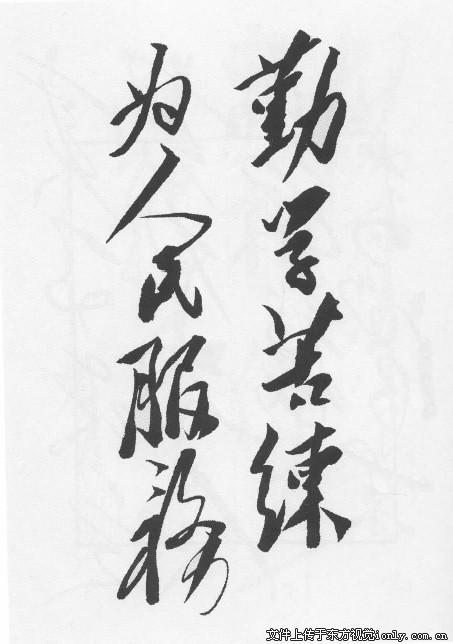 勤学苦练
为人民服务
文件上传于东方视觉ionly.com.cn